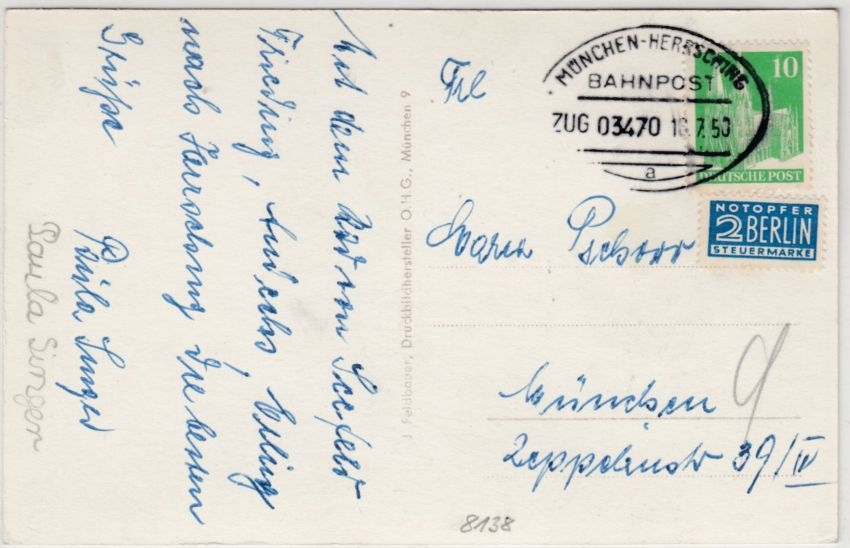 Mit dem Rad von Seefeld
Frieding, Andechs, Erling
nach Herrsching die besten
Grüße
Paula Singer
Paula Singer
J. Feldbauer, Druckbildhersteller O.H.G., München 9
Frl
Maria Pschorr
München 9
Zeppelinstr 39/IV
MÜNCHEN-HERRSCHING
BAHNPOST
ZUG 03470 7.50
a
10
DEUTSCHE POST
NOTOPFER
2 BERLIN
STEUERMARKE
8138